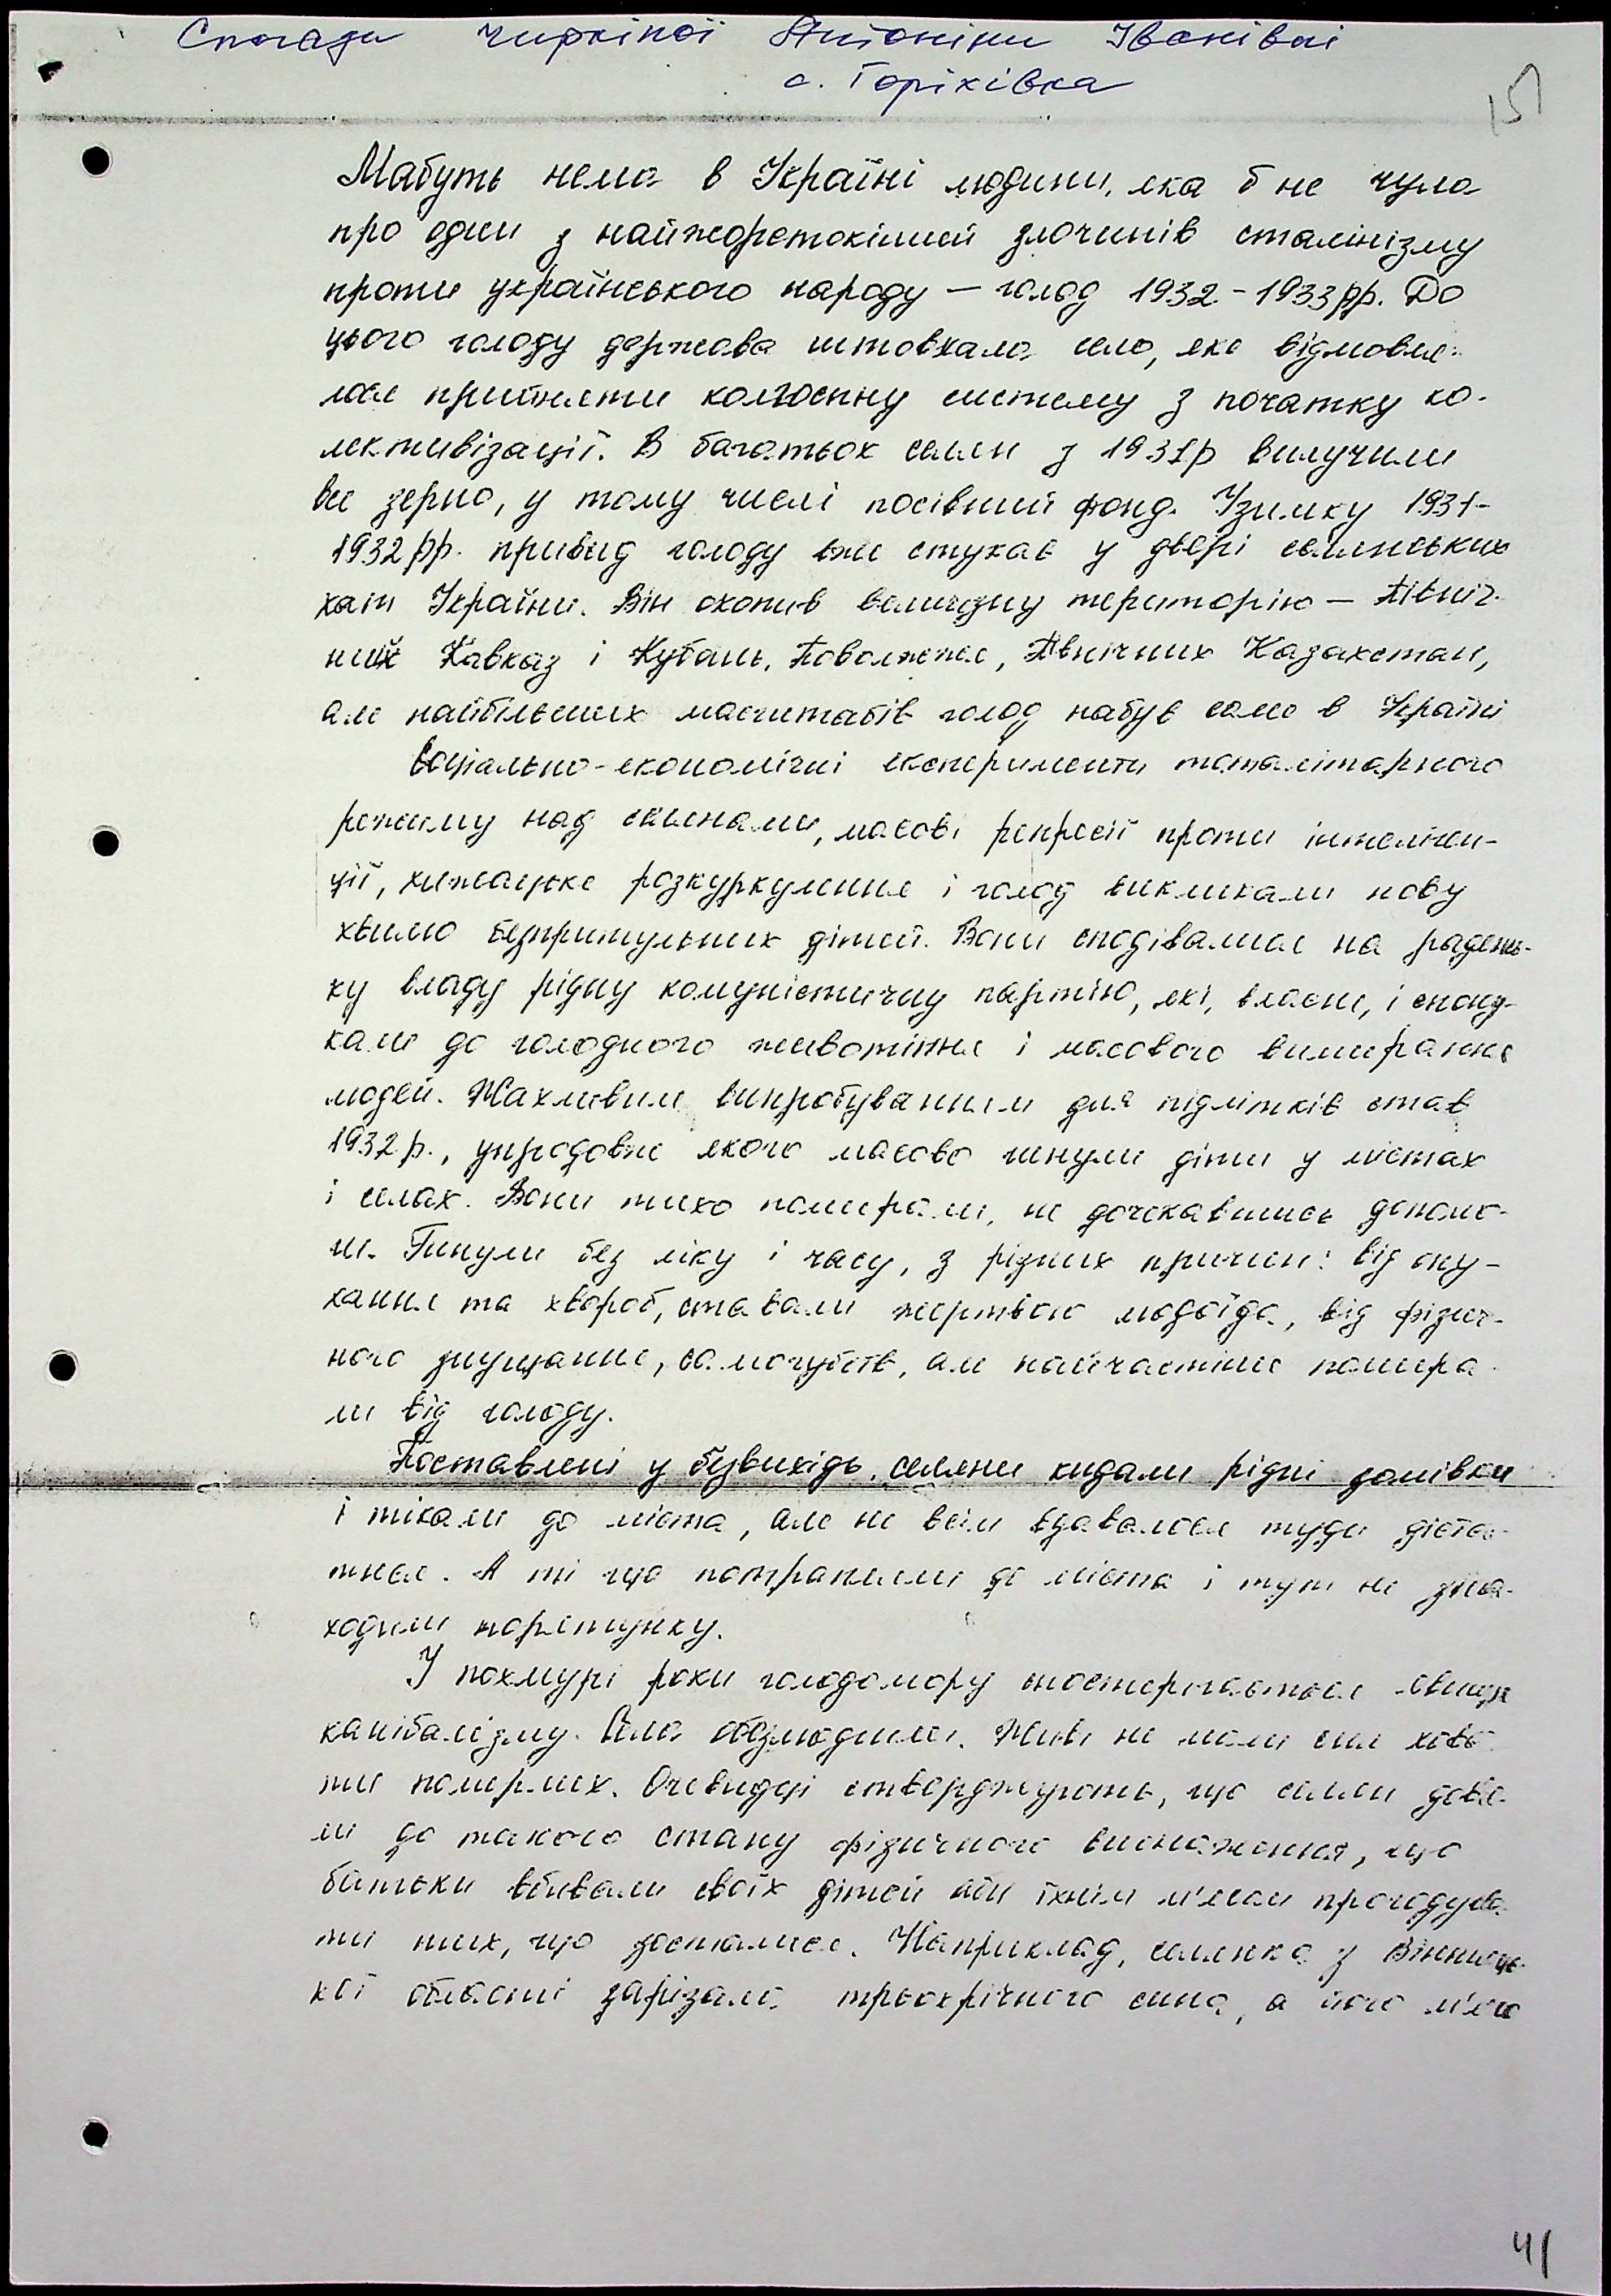 Спогади Чиркіної Антоніни Іванівни
с. Горіхівка
151
Мабуть нема в Україні людини, яка б не чула
про один з найжорстокіший злочинів сталінізму
проти українського народу — голод 1932-1933 рр. До
цього голоду держава штовхала село, яке відмовля-
лося прийняти колгоспну систему з початку ко-
лективізації. В багатьох селян з 1931р вилучили
все зерно, у тому числі посівний фонд. Узимку 1931-
1932 рр. привид голоду вже стукав у двері селянських
хат України. Він охопив величезну територію — Північ-
ний Кавказ і Кубань, Поволжжя, Північних Казахстан,
але найбільших масштабів голод набув саме в Україні
Соціально-економічні експерименти тоталітарного
режиму над селянами, масові репресії проти інтеліген-
ції, хижацьке розкуркулення і голод викликали нову
хвилю безпритульних дітей. Вони сподівалися на радянсь-
ку владу рідну комуністичну партію, які, власне, і спону-
кали до голодного животіння і масового вимирання
людей. Жахливим випробуванням для підлітків став
1932 р., упродовж якого масово гинули діти у містах
і селах. Вони тихо помирали, не дочекавшись допомо-
ги. Гинули без ліку і часу, з різних причин: від опу-
хання та хвороб, ставали жертвою людоїда, від фізич-
ного знущання, самогубств, але найчастіше помира-
ли від голоду.
Поставлені у безвихідь, селяни кидали рідні домівки
і тікали до міста, але не всім вдавалося туди діста-
тися. А ті що потрапили до міста і тут не зна-
ходили порятунку.
У похмурі роки голодомору спостерігається явище
канібалізму. Села обезлюдили. Живі не мали сил хова-
ти померлих. Очевидці стверджують, що селян дове-
ли до такого стану фізичного виснаження, що
батьки вбивали своїх дітей аби їхнім м'ясом прогодува-
ти тих, що зосталися. Наприклад, селянка з Вінниць-
кої області зарізала трьохрічного сина, а його м'ясо
41